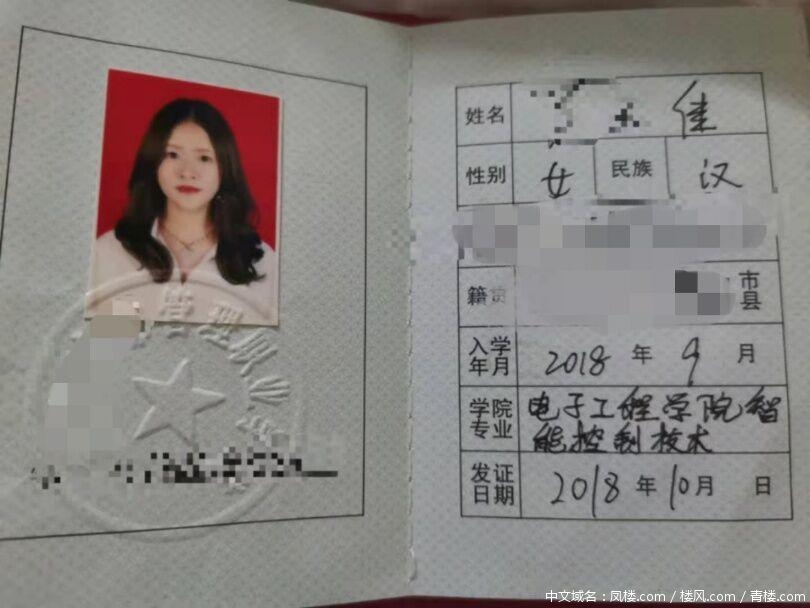 姓名 佳
性别 女 民族 汉
籍贯 市县
入学年月 2018年9月
学院专业 电子工程学院智
能控制技术
发证日期 2018年10月 日
管理职业
中文域名：凤楼.com / 楼风.com / 青楼.com